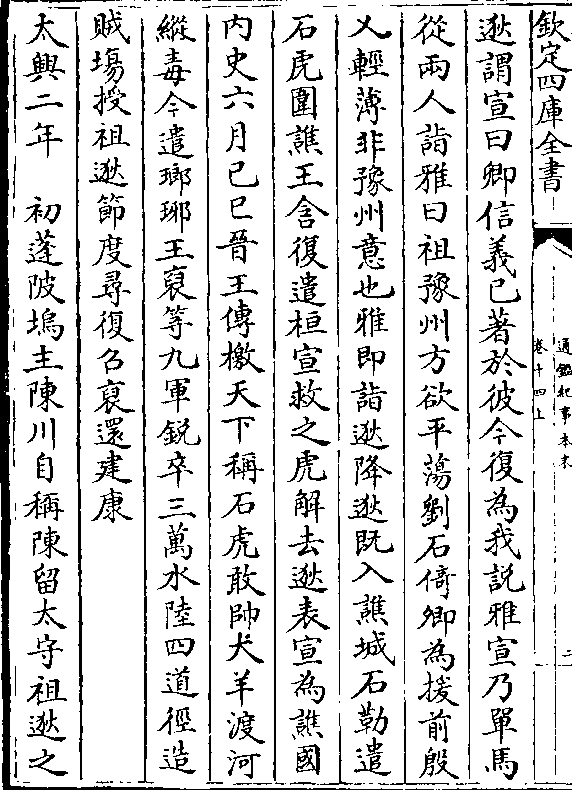 欽定四庫全書
通鑑紀事本末
卷十四上
二
逖謂宣曰卿信義已著於彼今復為我説雅宣乃單馬
從兩人詣雅曰祖豫州方欲平蕩劉石倚卿為援前殷
乂輕薄非豫州意也雅即詣逖降逖既入譙城石勒遣
石虎圍譙王含復遣桓宣救之虎解去逖表宣為譙國
内史六月己巳晉王傳檄天下稱石虎敢帥犬羊渡河
縱毒今遣琅琊王裒等九軍鋭卒三萬水陸四道徑造
賊塲授祖逖節度尋復召裒還建康
太興二年　初蓬陂塢主陳川自稱陳留太守祖逖之